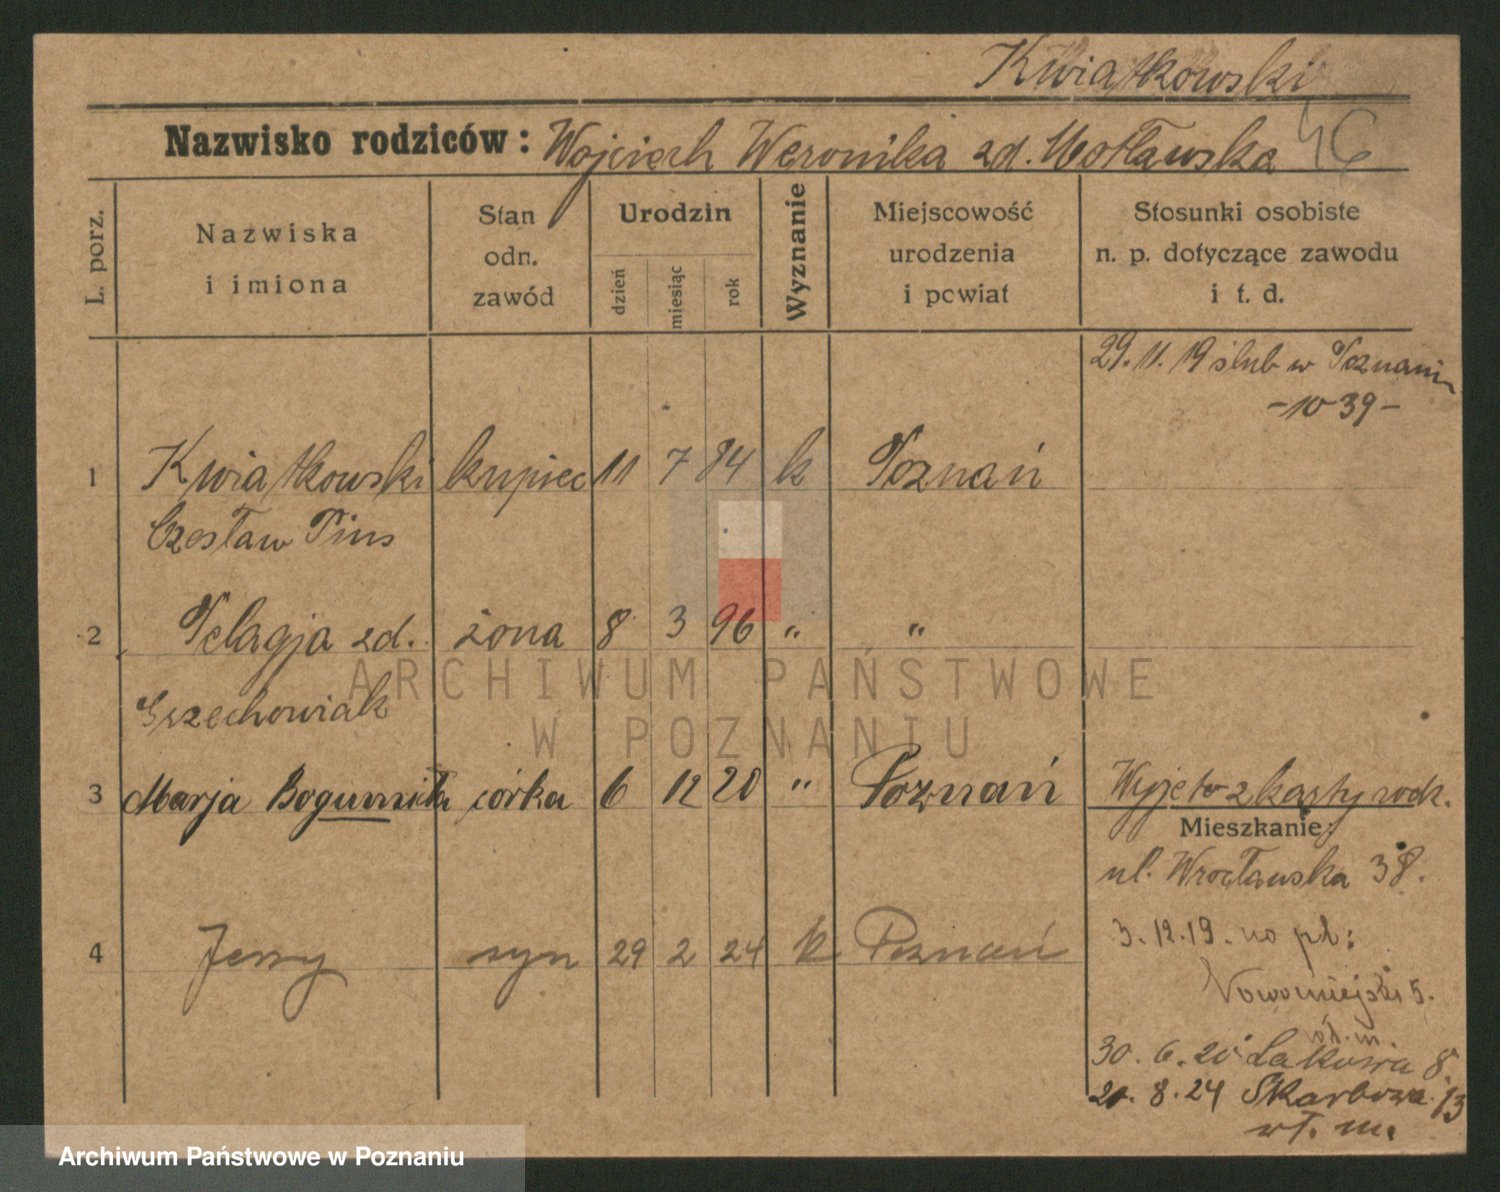 Kwiatkowski
Nazwisko rodziców: Wojciech Weronika zd. Motławska 46
L. porz.
Nazwiska
i imiona
Stan
odn.
zawód
Urodzin
dzień
miesiąc
rok
Wyznanie
Miejscowość
urodzenia
i powiat
Stosunki osobiste
n. p. dotyczące zawodu
i t. d.
29. 11. 19 ślub w Poznaniu
-1039-
1 Kwiatkowski kupiec 11 7 84 k Poznań
Czesław Pius
2 Pelagja zd. żona 8 3 96 " "
Grzechowiak
3 Marja Bogumiła córka 6 12 20 " Poznań Wyjęto z karty rodz.
Mieszkanie:
ul. Wrocławska 38.
4 Jerzy syn 29 2 24 k Poznań
3. 12. 19. no pl:
Nowomiejski 5.
wł. m.
30. 6. 20 Łąkowa 8.
20. 8. 24 Skarbowa 13
wł. m.
ARCHIWUM PAŃSTWOWE
W POZNANIU
Archiwum Państwowe w Poznaniu